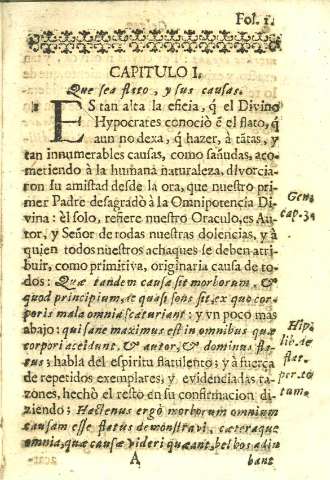 Fol. 1.
CAPITULO I.
Que sea flato, y sus causas.
ES tan alta la eficia, q̃ el Divino
Hypocrates conociò ẽ el flato, q̃
aun no dexa, q̃ hazer, à tãtas, y
tan innumerables causas, como sañudas, aco-
metiendo à la humana naturaleza, divorcia-
ron su amistad desde la ora, que nuestro pri-
mer Padre desagradò à la Omnipotencia Di-
vina: èl solo, refiere nuestro Oraculo, es Au-
tor, y Señor de todas nuestras dolencias, y à
quien todos nuestros achaques se deben atri-
buir, como primitiva, originaria causa de to-
dos: Quæ tandem causa sit morborum, &
quod principium, ac quasi fons sit, ex quo cor-
poris mala omnia scaturiant: y vn poco mas
abajo: qui sane maximus est in omnibus quæ
corpori accidunt, & autor, & dominus fla-
tus; habla del espiritu flatulento; y à fuerça
de repetidos exemplares, y evidenciadas ra-
zones, hechò el resto en su confirmacion di-
ziendo; Hactenus ergò morborum omnium
causam esse flatus demonstravi, cæteraque
omnia, quæ causæ videri queant, bei hos adiu
A
bant
Gen.
cap. 3.
Hip.
lib. de
flat.
per to
tum.